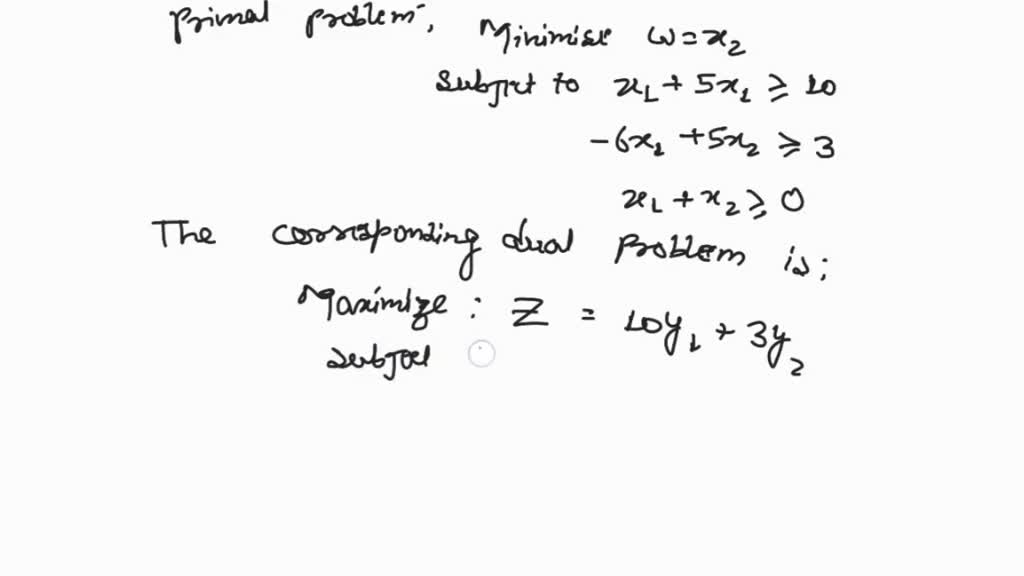 Primal problem, Minimise ω = x₂
Subject to x₁ + 5x₁ ≥ 10
-6x₁ + 5x₂ ≥ 3
x₁ + x₂ ≥ 0
The corresponding dual problem is;
Maximize : Z = 10y₁ + 3y₂
subject